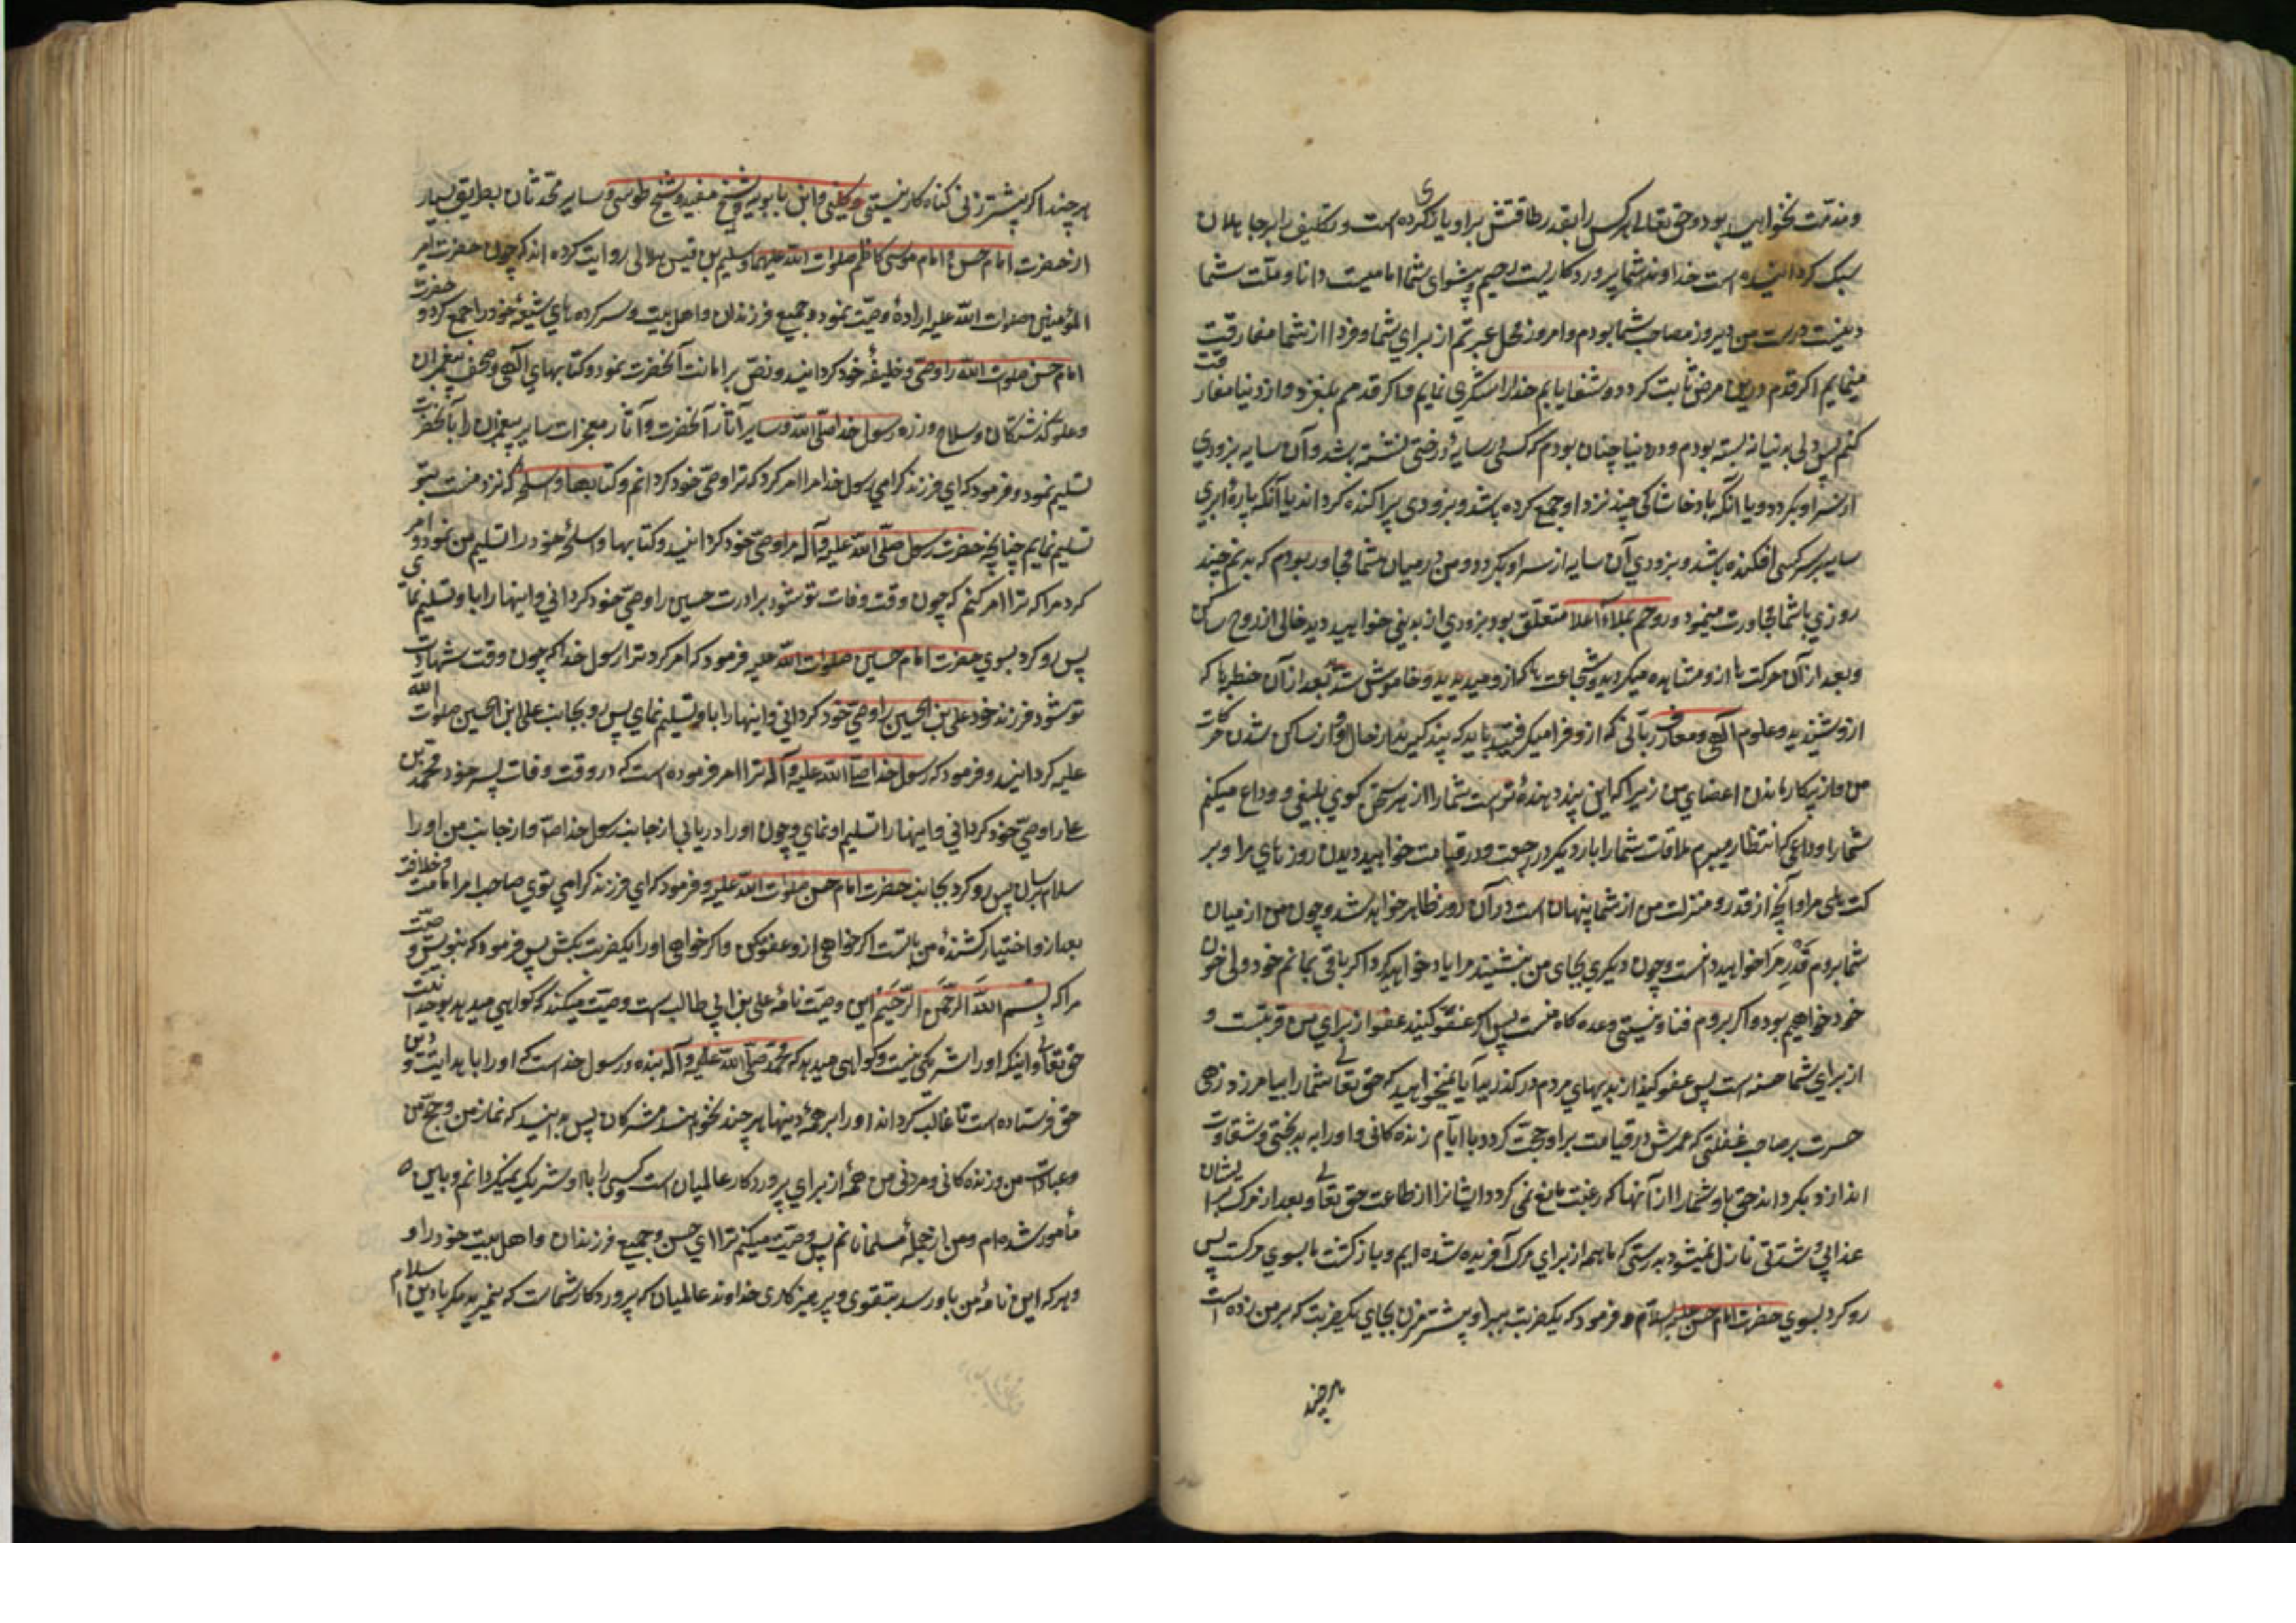 و مذمّت نخواهید بود و حق تعالی هر کس را بقدر طاقتش بر او باری کرده است و تکلیف را بر جاهلان
سبک گردانیده است خداوند شما پروردکاریست رحیم و پیشوای شما امامیست دانا و ملّت شما
دینیست درست من دیروز مصاحب شما بودم و امروز محل عبرتم از برای شما و فردا از شما مفارقت
مینمایم اکر قدم درین مرض ثابت کردد و شفا یابم خدا را شکری نمایم و اکر قدمم بلغزد و از دنیا مفارقت
کنم پس دلی بر دنیا نبسته بودم و در دنیا چنان بودم که کسی در سایهٔ درختی نشسته باشد و آن سایه بزودی
از سر او بکردد و یا آنکه باد خاشاکی چند نزد او جمع کرده باشد و بزودی پراکنده کرداند یا آنکه پارهٔ ابری
سایه بر سر کسی افکنده باشد و بزودی آن سایه از سر او بکردد و من در میان شما مجاور بودم که بدنم چند
روزی با شما مجاورت مینمود و روحم بملاء اعلا متعلق بود و بزودی از بدنی خواهید دید خالی از روح ساکن
و بعد از آن حرکت ها ازو مشاهده میکردید و شجاعت ها که ازو میدیدید و خاموش شد بعد از آن خطبه ها که
ازو شنیدید و علوم الهی و معارف ربّانی که ازو فرا میکرفتید باید که پند کیرید از حال او و از ساکن شدن حرکات
من و از بیکار ماندن اعضای من زیرا که این پند دهنده تر است شما را از هر سخن کوی بلیغی و وداع میکنم
شما را وداعی که انتظار میبرم ملاقات شما را بار دیکر در رجعت و در قیامت خواهید دیدن روزهای مرا و بر
کت های مرا و آنچه از قدر و منزلت من از شما پنهان است در آن روز ظاهر خواهد شد و چون من از میان
شما بروم قَدْرِ مرا خواهید دانست و چون دیکری بجای من بنشیند مرا یاد خواهید کرد اکر باقی بمانم خود ولی خون
خود خواهیم بود و اکر بروم فنا و نیستی وعده کاه منست پس اکر عفو کنید عفو از برای من قربتست و
از برای شما حسنه است پس عفو کنید از بدیهای مردم و در کذرید آیا نمیخواهید که حق تعالی شما را بیامرزد زهی
حسرت بر صاحب غفلتی که عمرش در قیامت بر او حجت کردد یا ایّام زنده کانی و او را به بدبختی و شقاوت
اندازد بکرداند حق ما و شما را از آنها که رغبت مانع نمی کردد ایشانرا از طاعت حق تعالی و بعد از مرک بر ایشان
عذابی و شدّتی نازل نمیشود بدرستی که ما همه از برای مرک آفریده شده ایم و بازکشت ما بسوی مرکست پس
رو کرد بسوی حضرت امام حسن علیه السلام و فرمود که یکضربت ببر او بیشتر مزن بجای یکضربت که بر من زده است
هر چند
هر چند اکر بیشتر زنی کناه کار نیستی و کلینی و ابن بابویه و شیخ مفید و شیخ طوسی و سایر محدثان بطریق بسیار
از حضرت امام حسن و امام موسی کاظم صلوات الله علیهما و سلیم بن قیس هلالی روایت کرده اند که چون حضرت امیر
المؤمنین صلوات الله علیه ارادهٔ وصیّت نمود و جمیع فرزندان و اهل بیت و سرکرده های شیعهٔ خود را جمع کرد و حضرت
امام حسن صلوات الله را وصی و خلیفهٔ خود کردانید و نص بر امامت آنحضرت نمود و کتابهای الهی و صحف پیغمبران
و علوم کذشتکان و سلاح و زره رسول خدا صلّی الله و سایر آثار آنحضرت و آثار معجزات سایر پیغمبران را بآنحضرت
تسلیم نمود و فرمود که ای فرزند کرامی رسول خدا مرا امر کرد که ترا وصی خود کردانم و کتابها و اسلحهٔ که نزد منست بتو
تسلیم نمایم چنانچه حضرت رسول صلّی الله علیه و آله مرا وصی خود کردانید و کتابها و اسلحهٔ خود را تسلیم من نمود و امر
کرد مرا که ترا امر کنم که چون وقت وفات تو شود برادرت حسین را وصی خود کردانی و اینها را باو تسلیم نمای
پس رو کرد بسوی حضرت امام حسین صلوات الله علیه فرمود که امر کرد ترا رسول خدا که چون وقت شهادت
تو شود فرزند خود علی بن الحسین را وصی خود کردانی و اینها را باو تسلیم نمای پس رو بجانب علی ابن الحسین صلوات الله
علیه کردانید و فرمود که رسول خدا صلّی الله علیه و آله ترا امر فرموده است که در وقت وفات پسر خود محمّد بن
علی را وصی خود کردانی و اینها را تسلیم او نمای و چون او را دریابی از جانب رسول خدا ص و از جانب من او را
سلام برسان پس رو کرد بجانب حضرت امام حسن صلوات الله علیه و فرمود که ای فرزند کرامی توی صاحب امر امامت و خلافت
بعد از و اختیار کشندهٔ من با تست اکر خواهی ازو عفو بکن و اکر خواهی او را بیکضربت بکش پس فرمود که بنویس وصیّت
مرا که بسم الله الرحمن الرحیم این وصیّت نامهٔ علی بن ابی طالب است وصیّت میکند که کواهی میدهد بوحدانیّت
حق تعالی و اینکه او را شریکی نیست و کواهی میدهد که محمّد صلّی الله علیه و آله بنده و رسول خداست که او را با هدایت و دین
حق فرستاده است تا غالب کرداند او را بر همهٔ دینها هر چند نخواهند مشرکان پس بدانید که نماز من و حجّ من
و عبادات من و زنده کانی و مردنی من همه از برای پروردکار عالمیان است و کسی را باو شریک نمیکردانم و باین
مأمور شده ام و من از جملهٔ مسلمانانم پس وصیّت میکنم ترا ای حسن و جمیع فرزندان و اهل بیت خود را و
و هر که این نامهٔ من باو رسد بتقوی و پرهیزکاری خداوند عالمیان که پروردکار شماست که نمیرید مکر با دین اسلام